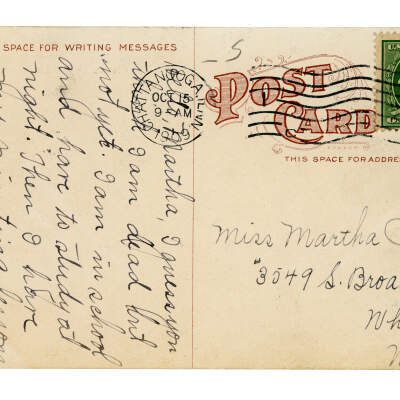 SPACE FOR WRITING MESSAGES
Martha, I guess you
think I am dead but
not yet. I am in school
and have to study at
night. Then I have
music lesson
S
CHATTANOOGA,
OCT 15
9-AM
1909
POST
CARD
THIS SPACE FOR ADDRE
Miss Martha
3549 S. Broa
Wh